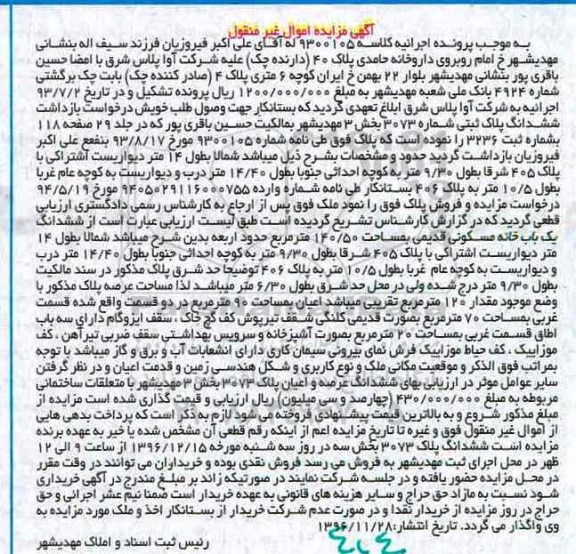 آگهی مزایده اموال غیر منقول
به موجب پرونده اجرائیه کلاسه ۹۳۰۰۱۰۵ له آقای علی اکبر فیروزیان فرزند سیف اله بنشانی
مهدیشهر خ امام روبروی داروخانه حامدی پلاک ۴۰ (دارنده چک) علیه شرکت آوا پلاس شرق با امضا حسین
باقری پور بنشانی مهدیشهر بلوار ۲۲ بهمن خ ایران کوچه ۶ متری پلاک ۴ (صادر کننده چک) بابت چک برگشتی
شماره ۴۹۲۴ بانک ملی شعبه مهدیشهر به مبلغ ۱۲۰۰/۰۰۰/۰۰۰ ریال پرونده تشکیل و در تاریخ ۹۳/۷/۲
اجرائیه به شرکت آوا پلاس شرق ابلاغ تعهدی گردید که بستانکار جهت وصول طلب خویش درخواست بازداشت
ششدانگ پلاک ثبتی شماره ۳۰۷۳ بخش ۳ مهدیشهر بمالکیت حسین باقری پور که در جلد ۲۹ صفحه ۱۱۸
بشماره ثبت ۳۲۳۶ را نموده است که پلاک فوق طی نامه شماره ۹۳۰۰۱۰۵ مورخ ۹۳/۸/۱۷ بنفع علی اکبر
فیروزیان بازداشت گردید حدود و مشخصات بشرح ذیل میباشد شمالا بطول ۱۴ متر دیواریست اشتراکی با
پلاک ۴۰۵ شرقا بطول ۹/۳۰ متر به کوچه احداثی جنوبا بطول ۱۴/۴۰ متر درب و دیواریست به کوچه عام غربا
بطول ۱۰/۵ متر به پلاک ۴۰۶ بستانکار طی نامه شماره وارده ۹۴۰۵۰۲۹۱۱۶۰۰۰۷۵۵ مورخ ۹۴/۵/۱۹
درخواست مزایده و فروش پلاک فوق را نمود ملک فوق پس از ارجاع به کارشناس رسمی دادگستری ارزیابی
قطعی گردید که در گزارش کارشناس تشریح گردیده است طبق لیست ارزیابی عبارت است از ششدانگ
یک باب خانه مسکونی قدیمی بمساحت ۱۴۰/۵۰ مترمربع حدود اربعه بدین شرح میباشد شمالا بطول ۱۴
متر دیواریست اشتراکی با پلاک ۴۰۵ شرقا بطول ۹/۳۰ متر به کوچه احداثی جنوبا بطول ۱۴/۴۰ متر درب
و دیواریست به کوچه عام غربا بطول ۱۰/۵ متر به پلاک ۴۰۶ توضیحا حد شرق پلاک مذکور در سند مالکیت
بطول ۹/۳۰ متر درج شده ولی در محل حد شرق بطول ۶/۳۰ متر میباشد لذا مساحت عرصه پلاک مذکور با
وضع موجود مقدار ۱۲۰ متر مربع تقریبی میباشد اعیان بمساحت ۹۰ مترمربع در دو قسمت واقع شده قسمت
غربی بمساحت ۷۰ مترمربع بصورت قدیمی کلنگی سقف تیرپوش کف گچ خاک ، سقف ایزوگام دارای سه باب
اطاق قسمت غربی بمساحت ۲۰ مترمربع بصورت آشپزخانه و سرویس بهداشتی سقف ضربی تیرآهن ، کف
موزاییک ، کف حیاط موزاییک فرش نمای بیرونی سیمان کاری دارای انشعابات آب و برق و گاز میباشد با توجه
بمراتب فوق الذکر و موقعیت مکانی ملک و نوع کاربری و شکل هندسی زمین و قدمت اعیان و در نظر گرفتن
سایر عوامل موثر در ارزیابی بهای ششدانگ عرصه و اعیان پلاک ۳۰۷۳ بخش ۳ مهدیشهر با متعلقات ساختمانی
مربوطه به مبلغ ۴۳۰/۰۰۰/۰۰۰ (چهارصد و سی میلیون) ریال ارزیابی و قیمت گذاری شده است مزایده از
مبلغ مذکور شروع و به بالاترین قیمت پیشنهادی فروخته می شود لازم به ذکر است که پرداخت بدهی هایی
از اموال غیر منقول فوق و غیره تا تاریخ مزایده اعم از اینکه رقم قطعی آن مشخص شده یا خیر به عهده برنده
مزایده است ششدانگ پلاک ۳۰۷۳ بخش سه در روز سه شنبه مورخه ۱۳۹۶/۱۲/۱۵ از ساعت ۹ الی ۱۲
ظهر در محل اجرای ثبت مهدیشهر به فروش می رسد فروش نقدی بوده و خریداران می توانند در وقت مقرر
در محل مزایده حضور یافته و در جلسه شرکت نمایند در صورتیکه زائد بر مبلغ مندرج در آگهی خریداری
شود نسبت به مازاد حق حراج و سایر هزینه های قانونی به عهده خریدار است ضمنا نیم عشر اجرائی و حق
حراج در روز مزایده از خریدار نقدا و در صورت عدم شرکت خریدار از بستانکار اخذ و ملک مورد مزایده به
وی واگذار می گردد. تاریخ انتشار: ۱۳۹۶/۱۱/۲۸
رئیس ثبت اسناد و املاک مهدیشهر